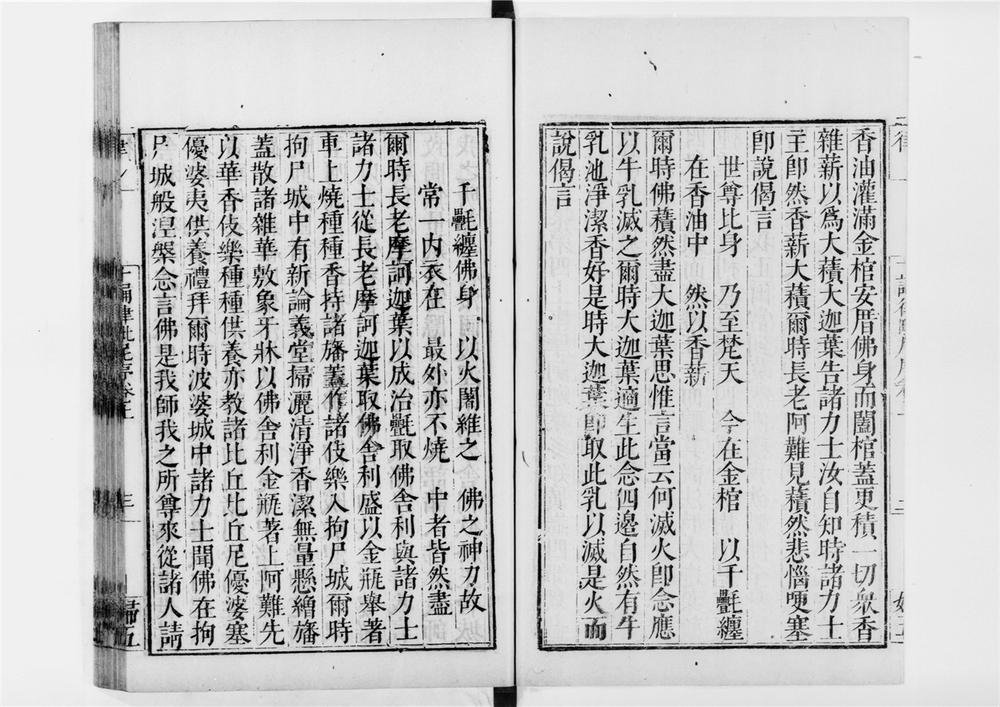 香油灌滿金棺安厝佛身而闔棺蓋更積一切衆香
雜薪以爲大𧂐大迦葉告諸力士汝自知時諸力士
主卽然香薪大𧂐爾時長老阿難見𧂐然悲惱哽塞
卽說偈言
世尊比身　乃至梵天　今在金棺　以千㲲纏
在香油中　然以香薪
爾時佛𧂐然盡大迦葉思惟言當云何滅火卽念應
以牛乳滅之爾時大迦葉適生此念四邊自然有牛
乳池淨潔香好是時大迦葉卽取此乳以滅是火而
說偈言
千㲲纏佛身　以火闍維之　佛之神力故
常一內衣在　最外亦不燒　中者皆然盡
爾時長老摩訶迦葉以成治㲲取佛舍利與諸力士
諸力士從長老摩訶迦葉取佛舍利盛以金瓶舉著
車上燒種種香持諸旛蓋作諸伎樂入拘尸城爾時
拘尸城中有新論義堂掃灑清淨香潔無量懸繒旛
蓋散諸雜華敷象牙牀以佛舍利金瓶著上阿難先
以華香伎樂種種供養亦教諸比丘比丘尼優婆塞
優婆夷供養禮拜爾時波婆城中諸力士聞佛在拘
尸城般涅槃念言佛是我師我之所尊來從諸人請
律
十誦律毗尼序卷三
三
歸五